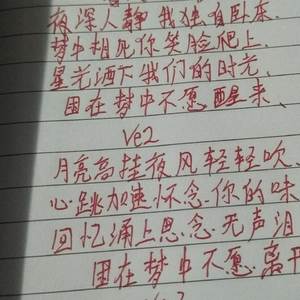 夜深人静 我独自卧床
梦中相见你笑脸爬上
星光洒下我们的时光
困在梦中不愿醒来
Ve2
月亮高挂夜风轻轻吹
心跳加速怀念你的味
回忆涌上思念无声泪
困在梦中不愿离开